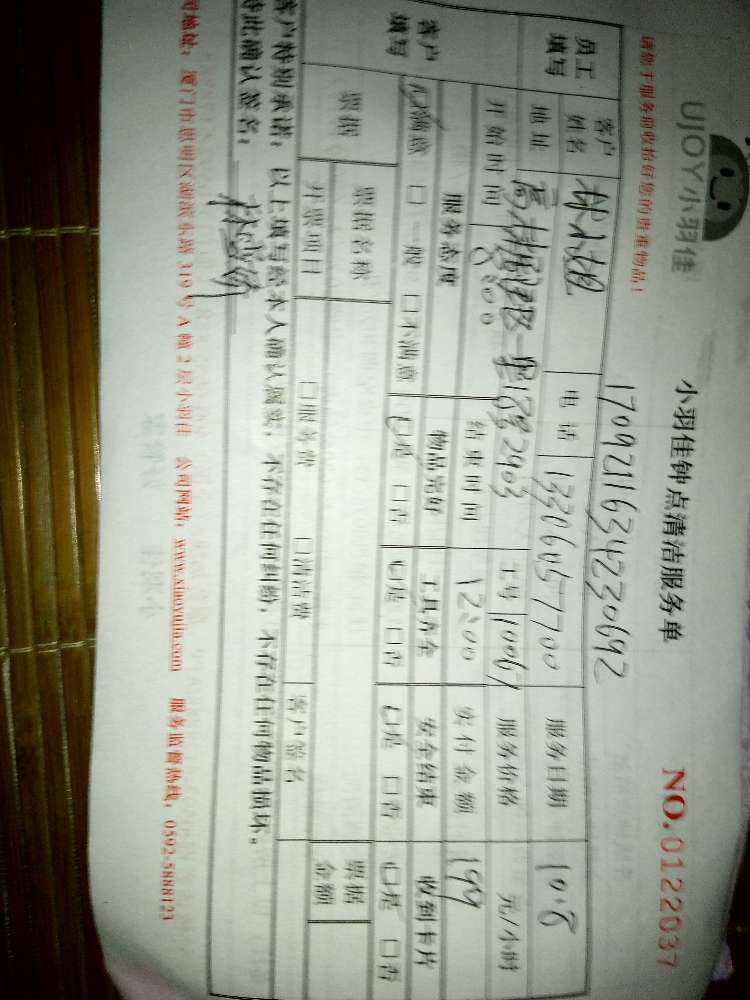 UJOY小羽佳
小羽佳钟点清洁服务单
NO.0122037
请您于服务前收拾好您的贵重物品!
17092116342730692
员工填写
客户姓名 林小姐 电话 13306057700 服务日期 10.8
地址 2903 工号 10067 服务价格 元/小时
开始时间 8:00 结束时间 12:00 实付金额 199
客户填写
服务态度 物品完好 工具齐全 安全结束 收到卡片
满意 □一般 □不满意 □是 □否 □是 □否 □是 □否 □是 □否
票据 票据名称 票据金额
开票项目 □服务费 □清洁费 客户签名
客户特别承诺:以上填写经本人确认属实,不存在任何纠纷,不存在任何物品损坏。
特此确认签名:
司地址:厦门市思明区湖滨东路319号A幢2层小羽佳 公司网站:www.xiaoyujia.com 服务监督热线:0592-5888123